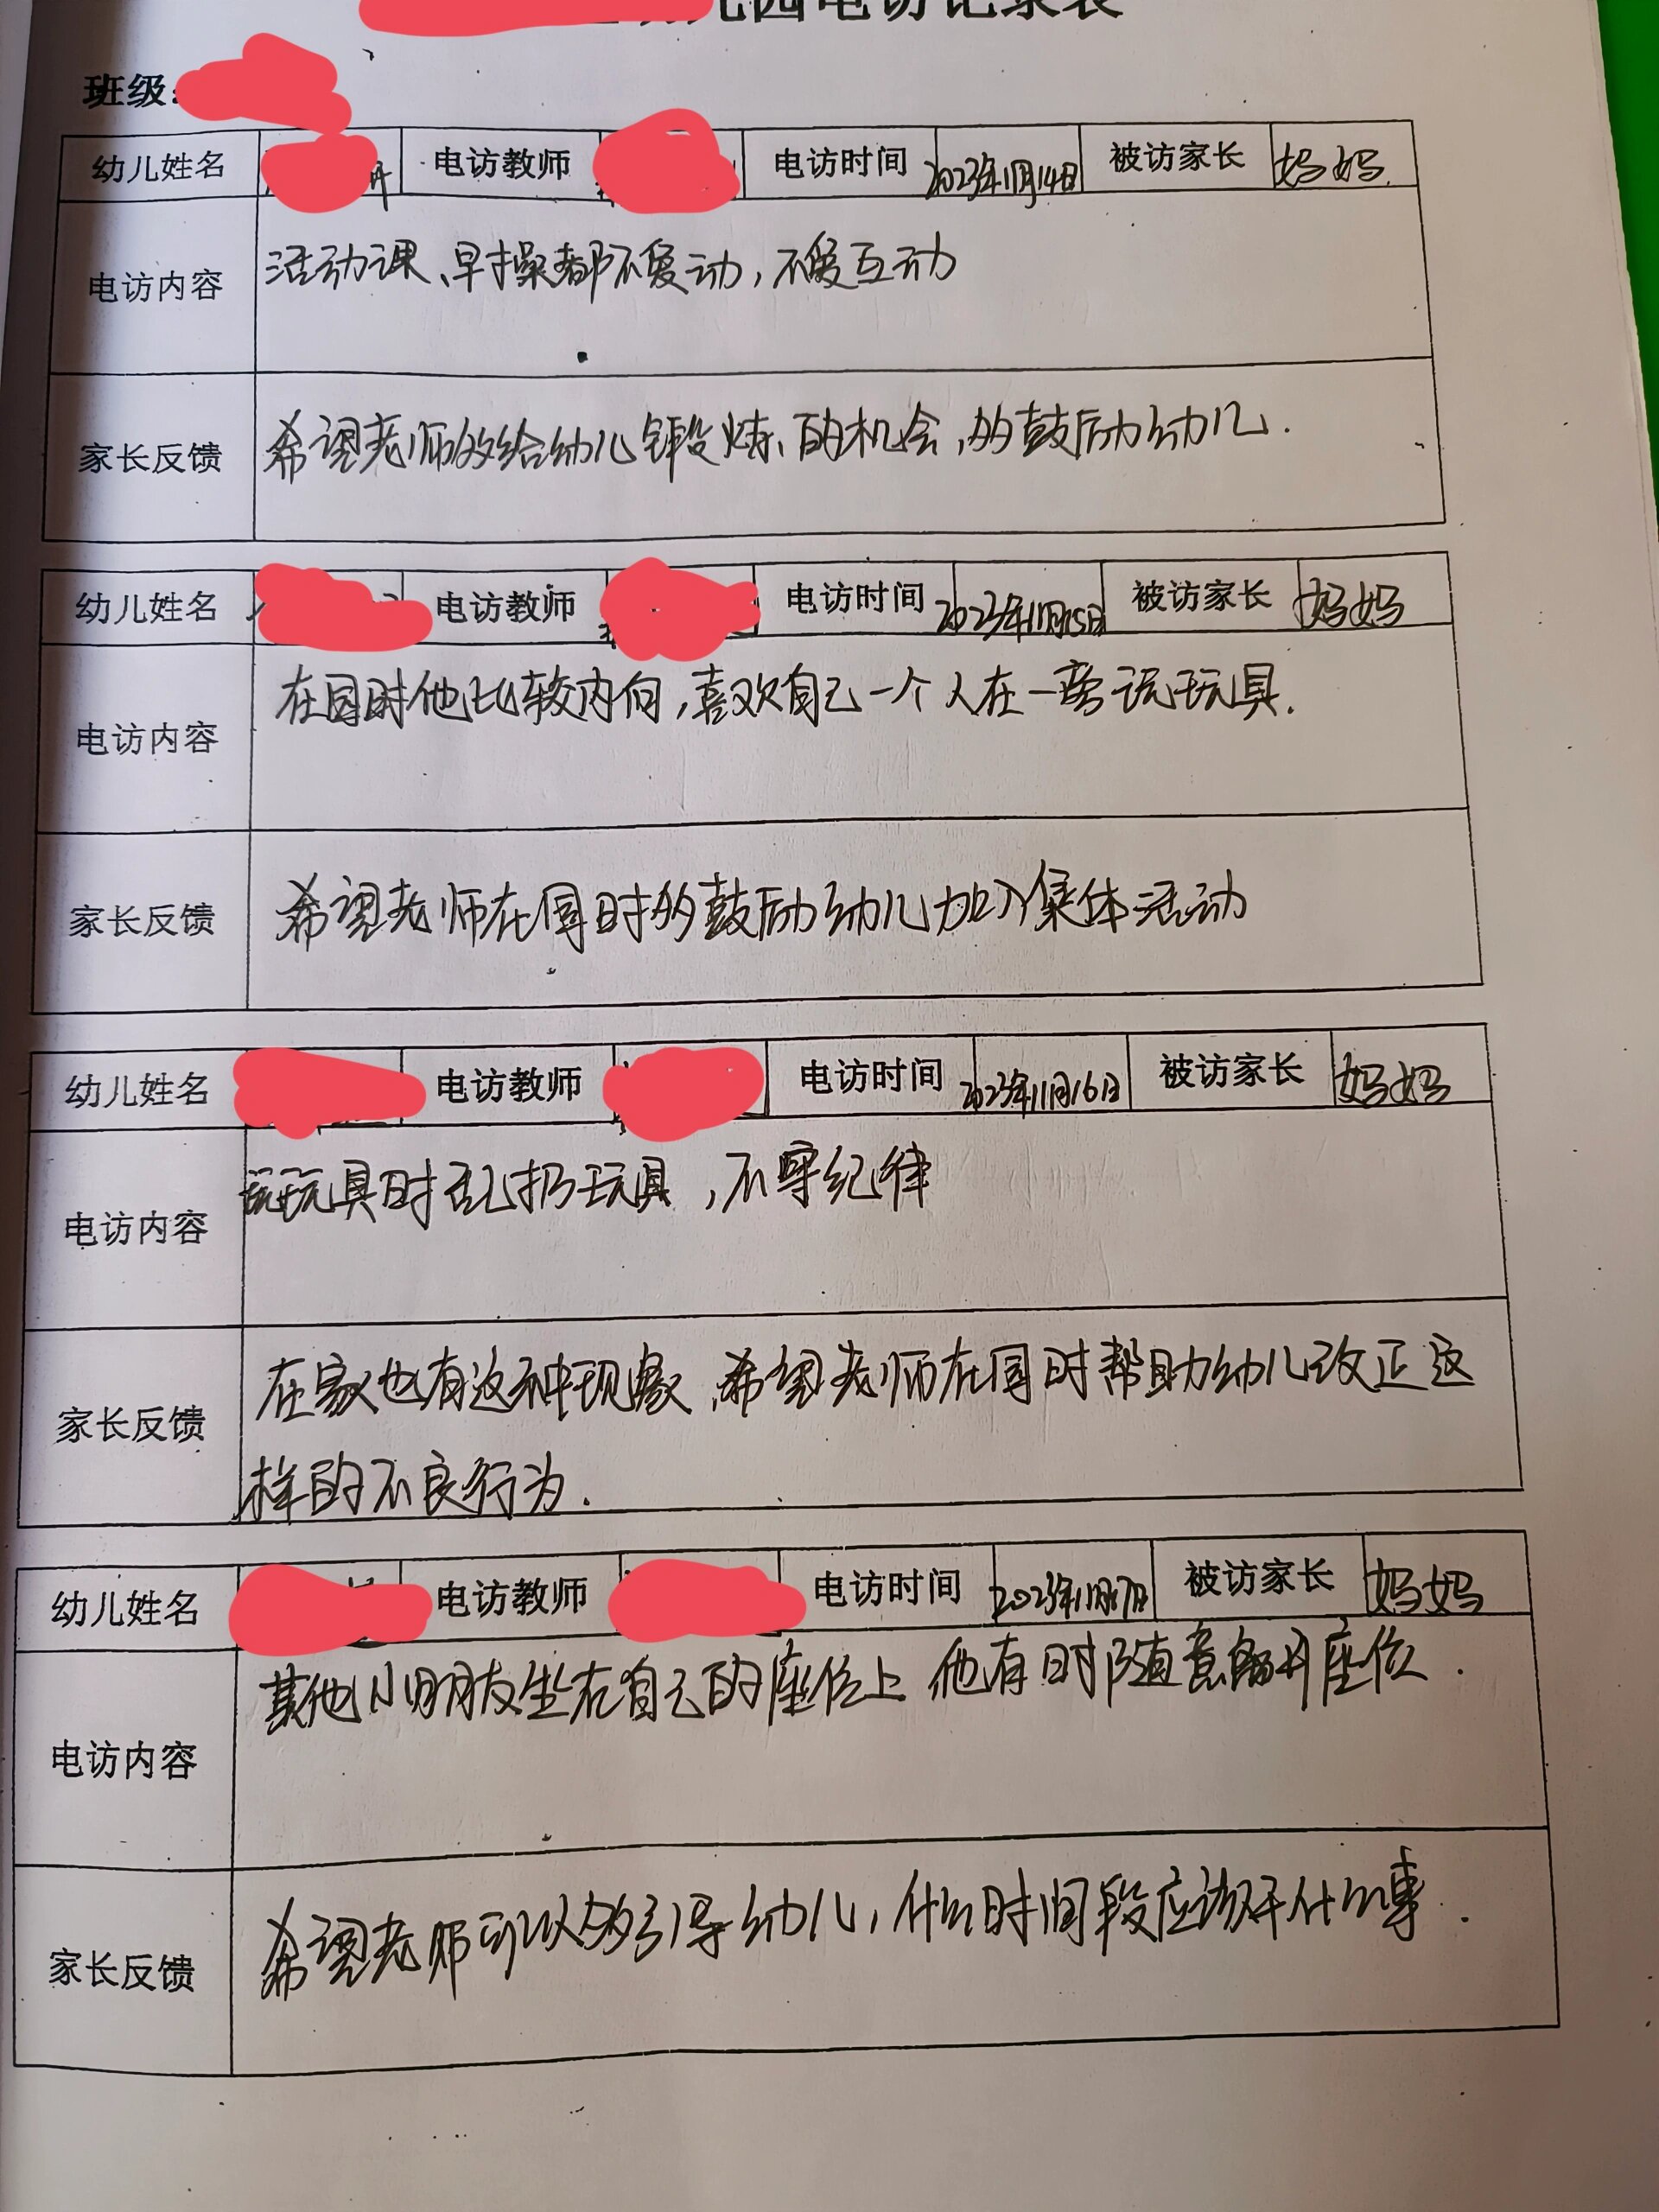 儿园电访记录表
班级:
幼儿姓名 电访教师 电访时间 2023年11月14日 被访家长 妈妈
电访内容 活动课、早操都不爱动,不爱互动
家长反馈 希望老师多给幼儿锻炼的机会,多鼓励幼儿.
幼儿姓名 电访教师 电访时间 2023年11月15日 被访家长 妈妈
电访内容 在园时他比较内向,喜欢自己一个人在一旁玩玩具.
家长反馈 希望老师在园时多鼓励幼儿加入集体活动
幼儿姓名 电访教师 电访时间 2023年11月16日 被访家长 妈妈
电访内容 玩玩具时乱扔玩具,不守纪律
家长反馈 在家也有这种现象,希望老师在园时帮助幼儿改正这
样的不良行为.
幼儿姓名 电访教师 电访时间 2023年11月17日 被访家长 妈妈
电访内容 其他小朋友坐在自己的座位上 他有时随意离开座位.
家长反馈 希望老师可以多引导幼儿,什么时间段应该干什么事.